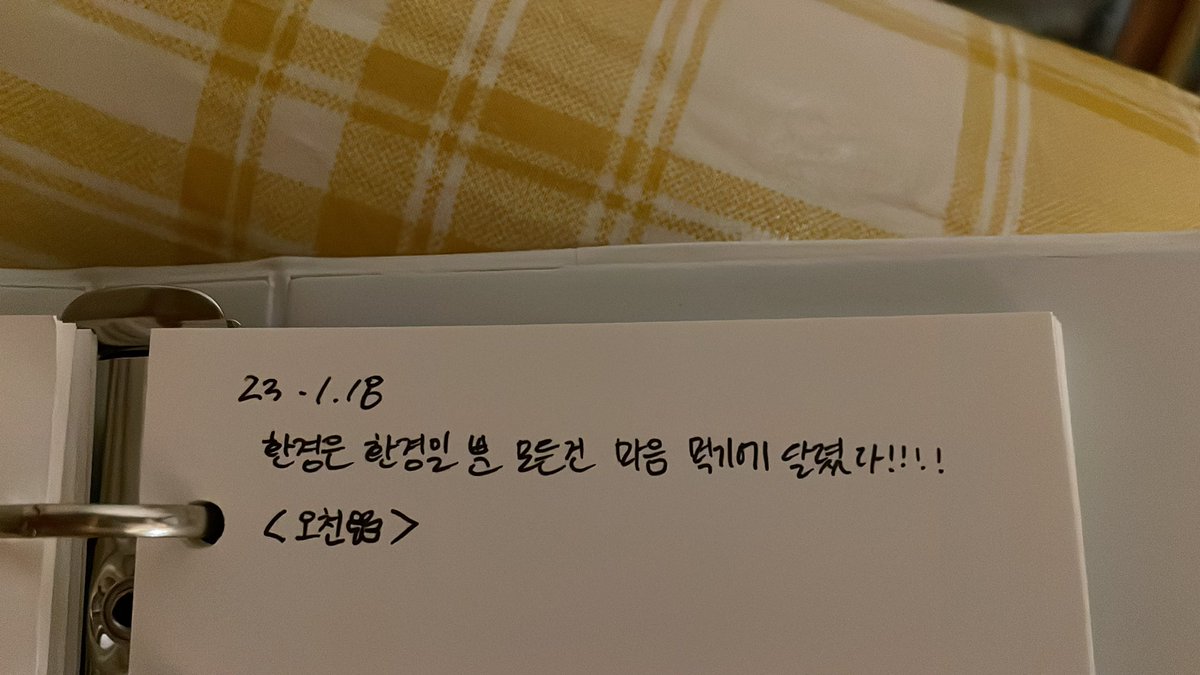 23.1.18
환경은 환경일 뿐 모든건 마음 먹기에 달렸다!!!!
<오천>